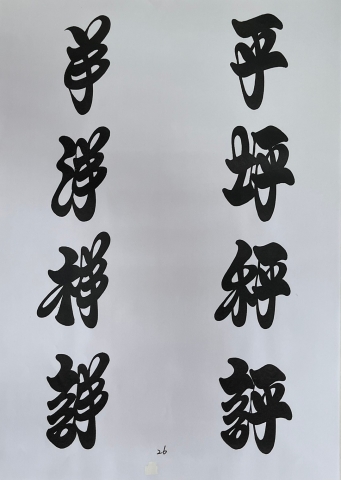 平坪秤評
羊洋祥詳
26